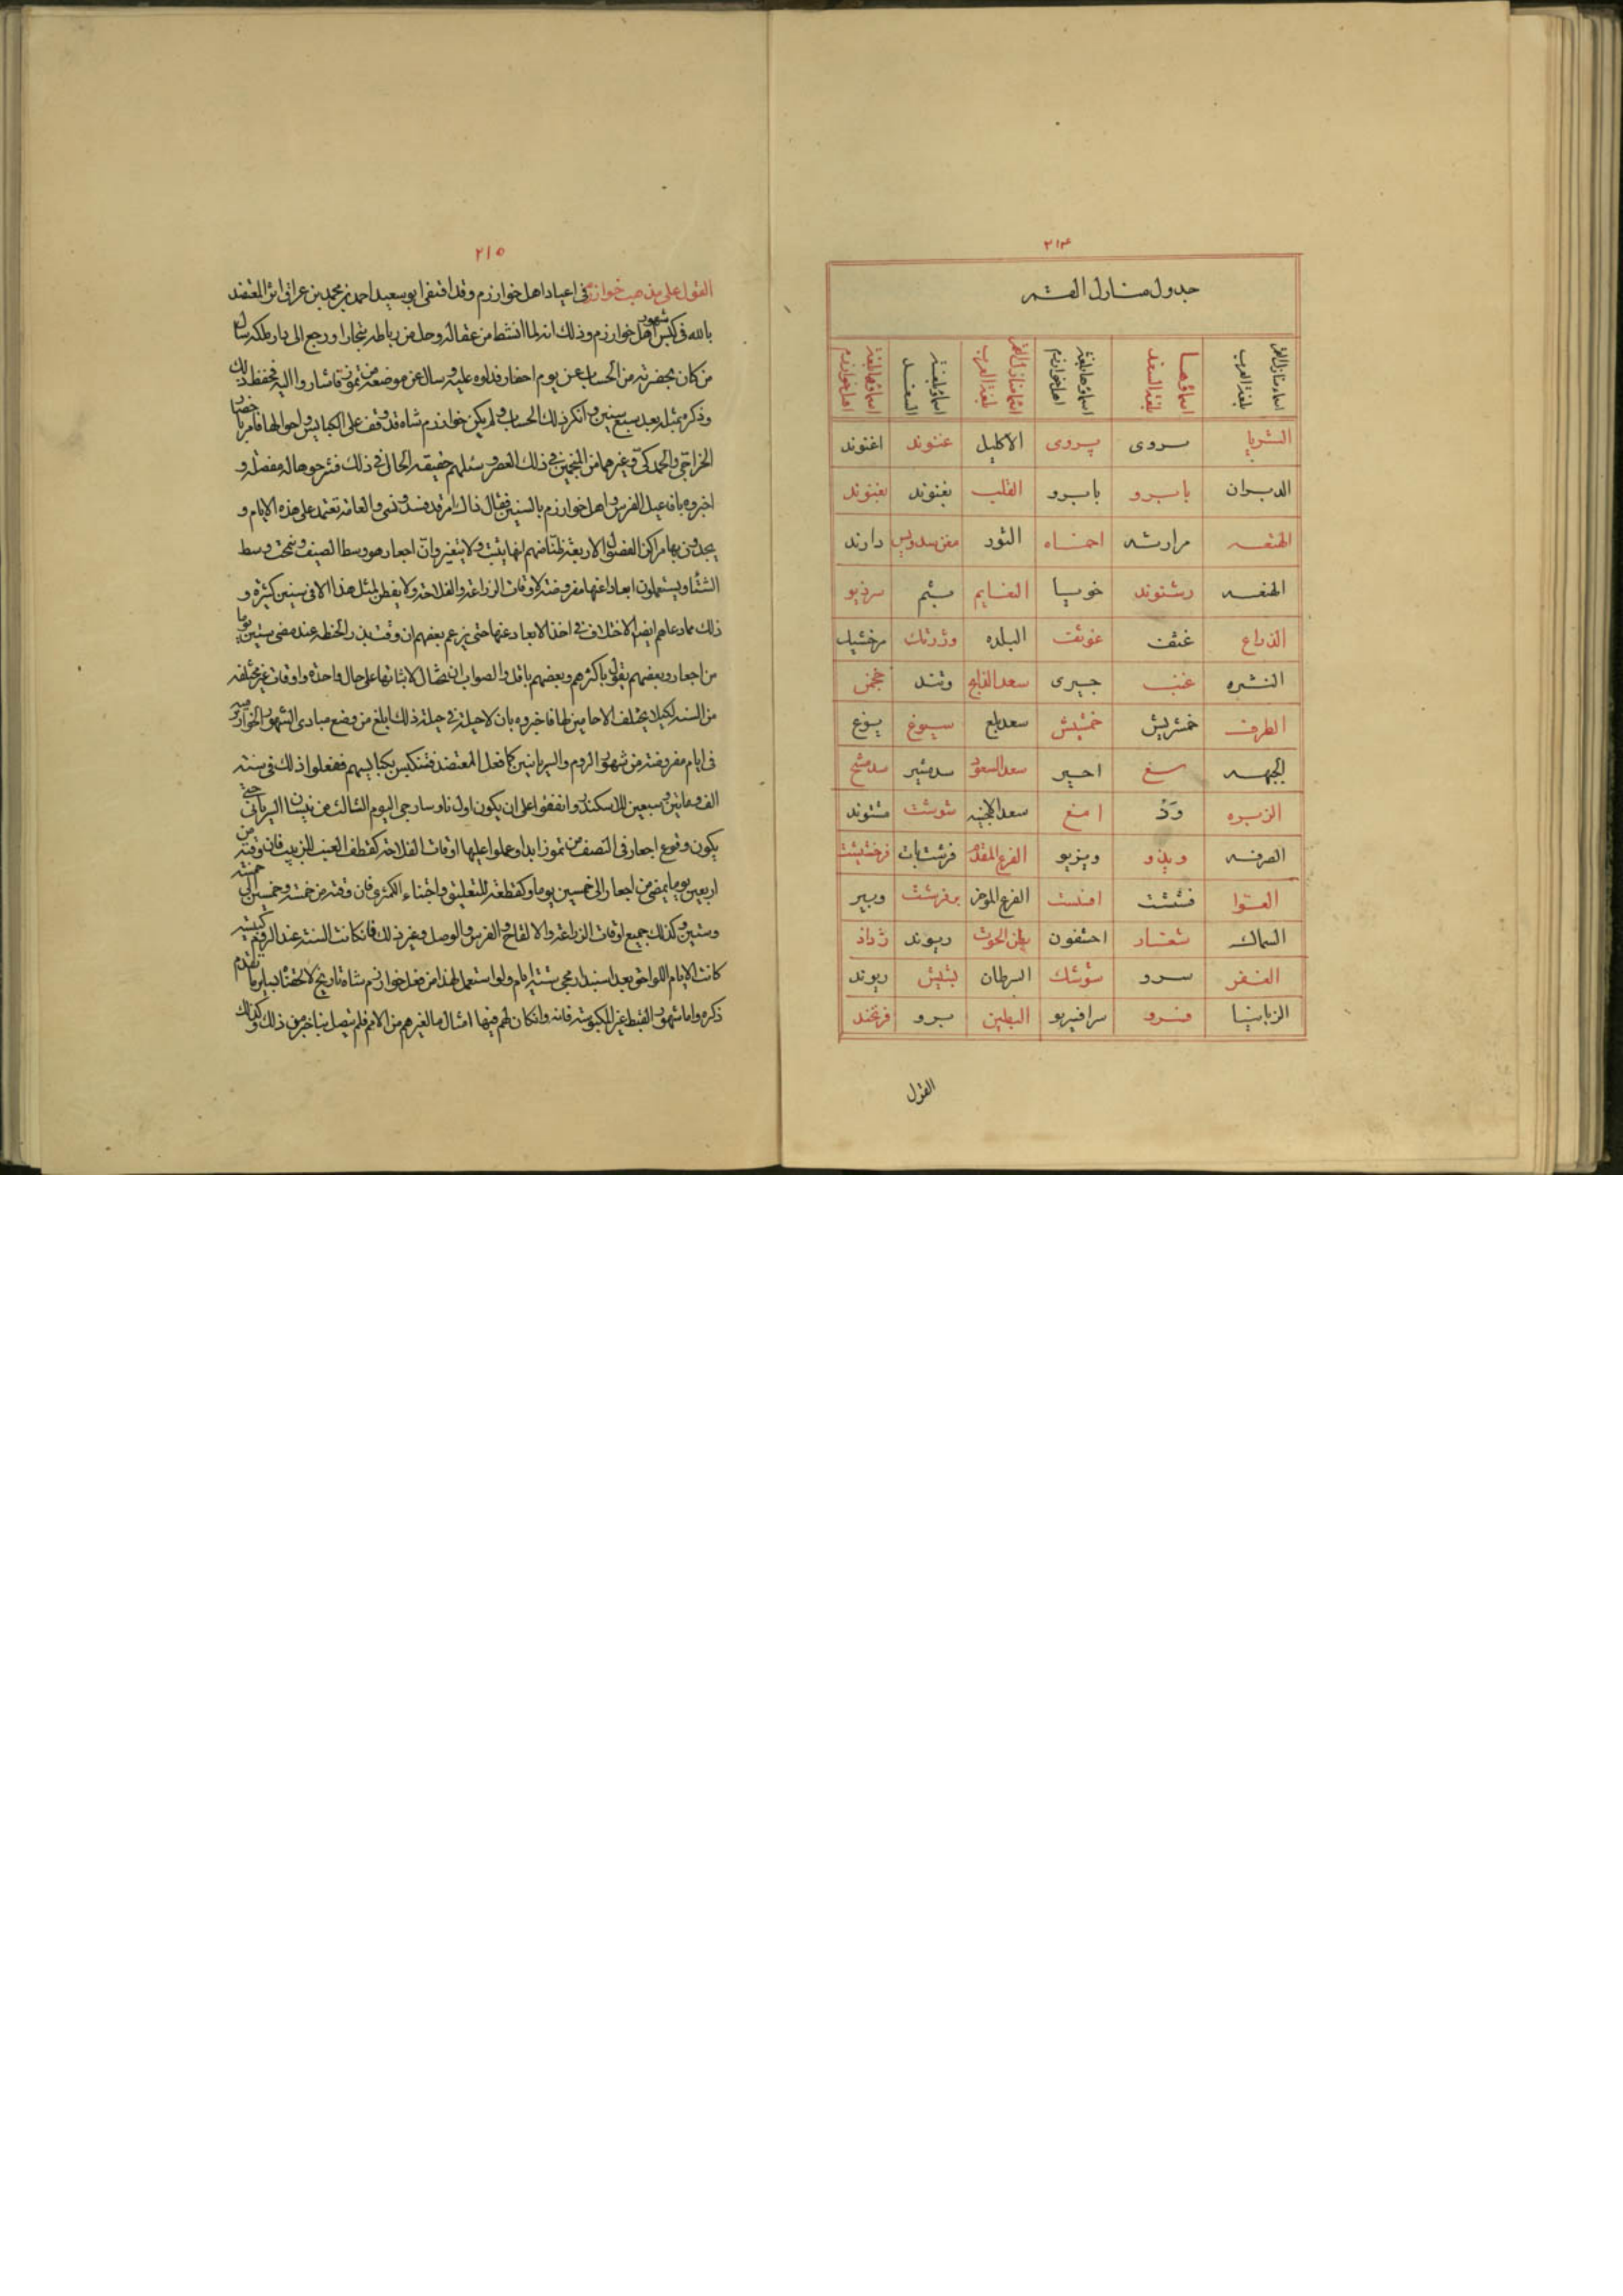 ٢١٤
جدول منازل القمر
اسماء منازل القمر بلغة العرب اسماؤها بلغة السغد اسماؤها بلغة اهل خوارزم اسماء منازل القمر بلغة العرب اسماؤها بلغة السغد اسماؤها بلغة اهل خوارزم
الثريا پروی پروی الاكليل غنوند اغنوند
الدبران بابرو بابرو القلب بغنوند بغنوند
الهقعه مرازنه اخماه الثور مغن سدويس دارند
الهنعه رشنوند خويا النعايم
الذراع غثف غوثف البلده وژرنك مرخشيك
النثره غنب جيرى سعد الذابح وتند
الطرف خمشريش خمشيش سعد بلع
الجبهه مغ اجير سعد السعود سدمشير سدمشج
الزبره وذ امغ سعد الاخبيه شوشت مشتوند
الصرفه ويذو ويزيو الفرغ المقدم فرشت بات فرخشبيث
العوا فشتشت افست الفرغ الموخر برفرشت وبير
السماك شغار اخشفون بطن الحوت ريوند ژداد
الغفر سرو شوشك السرطان بشيش ريوند
الزبانيا فسرو سرافيريو البطين برو فرنخند
القول
٢١٥
القول على مذهب خوارزم فى اعياد اهل خوارزم وقد اقتفى ابو سعيد احمد بن محمد بن عراق اثر المعتضد
بالله فى كبس شهور اهل خوارزم وذلك انه لما انشط من عقاله وحل من رباطه ببخارا ورجع الى دار ملكه سال
من كان بحضرته من الحساب عن يوم اجغار فدلوه عليه وسال عن موضعه من تموز فاشاروا اليه فحفظ ذلك
وذكره بمثله بعد سبع سنين وانكر ذلك الحساب ولم يكن خوارزم شاه قد وقف على الكبايس واحوالها فامر باحضار
الخراجى والحمدكى وغيرهما من المنجمين فى ذلك العصر وسئلهم حقيقه الحال فى ذلك فشرحوها له مفصله و
اخبروه بافاعيل الفرس واهل خوارزم بالسنين فقال ذالك امر قد فسد ونسى والعامه تعتمد على هذه الايام و
يجدون بها مراكز الفصول الاربعة ظنا منهم انها يثبت ولا يتغير وان اجغار هو وسط الصيف ونيمخت وسط
الشتاء ويستعملون ابعادا عنها مفروضة لاوقات الزراعة والفلاحة ولا يفطن لمثل هذا الا فى سنين كثيره و
ذلك مما دعاهم ايضا الاختلاف فى اخذ الابعاد عنها حتى زعم بعضهم ان وقت بذر الحنطه عند مضى ستين يوما
من اجغار وبعضهم يقول باكثر وبعضهم باقل والصواب ان نحتال لاثباتها على حال واحدة واوقات غير مختلفه
من السنه لكيلا يختلف الاحايين لها فاخبروه بان لا حيلة فى حيلة ذلك ابلغ من وضع مبادى الشهور الخوارزميه
فى ايام مفروضة من شهور الروم والسريانيين كما فعل المعتضد فتنكبس بكبايسهم ففعلوا ذلك فى سنة
الف ومايتين وسبعين للاسكندر واتفقوا على ان يكون اول ناوسارجى اليوم الثالث من نيسان السريانى حتى
يكون وقوع اجغار فى النصف من تموز ابدا وعملوا عليها اوقات الفلاحة كقطف العنب للزبيب فان وقته من
اربعين يوما يمضى من اجغار الى خمسين يوما وكقطعه للتعليق واجتناء الكمثرى فان وقته من خمسة وخمسين الى خمسة
وستين وكذلك جميع اوقات الزراعة والالقاح والغرس والوصل وغير ذلك فاذا كانت السنة عند الروم كبيسة
كانت الايام اللواحق بعد اسبندارمجى ستة ايام ولو استعمل لهذا من فعل خوارزم شاه تاريخ لالحقناه بساير ما تقدم
ذكره واما شهور القبط غير المكبوسة فانه وان كان لهم فيها امثال ما لغيرهم من الامم فلم يتصل بنا خبر من ذلك وكذلك